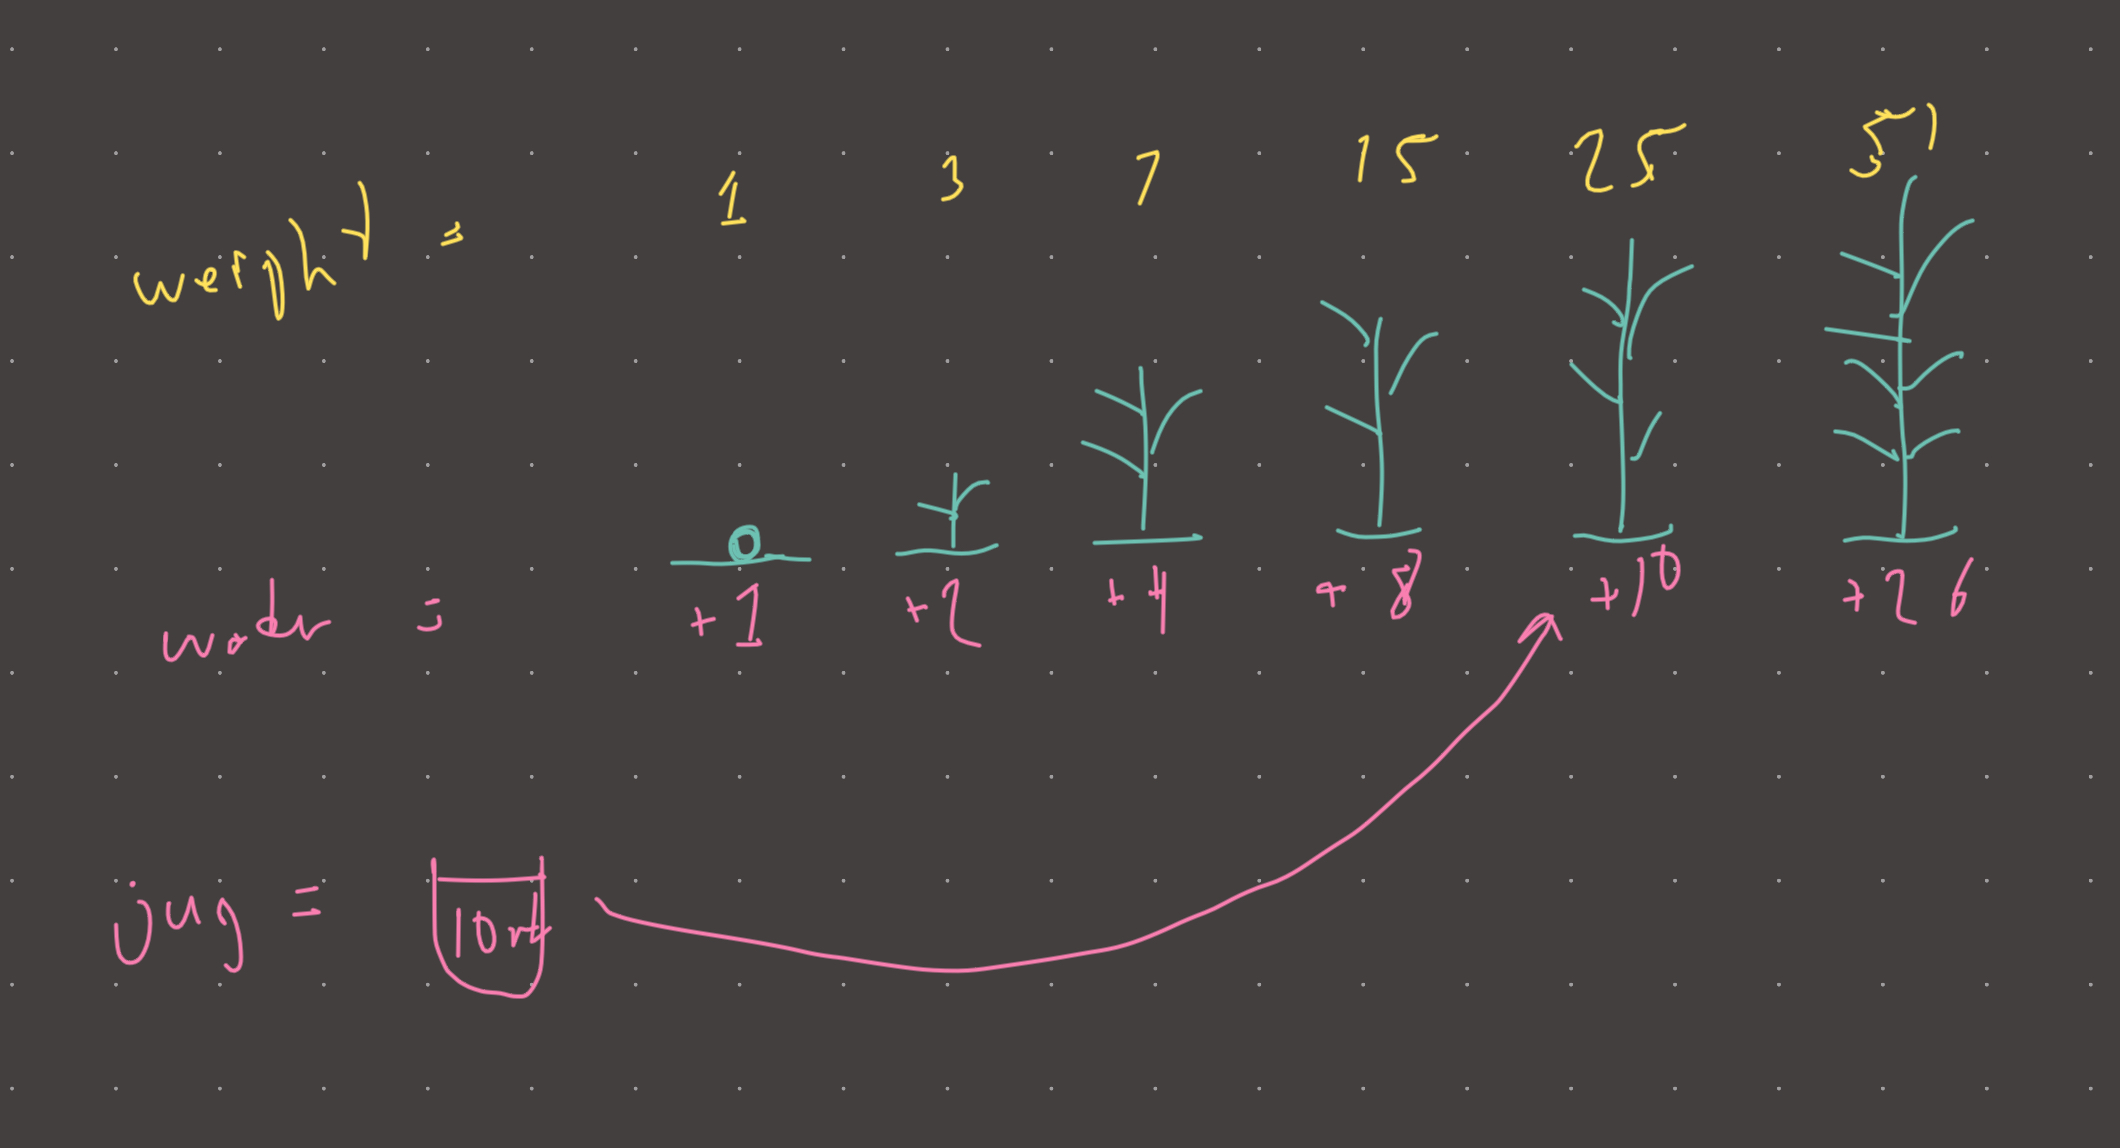 weight = 1 3 7 15 25 51
water = +1 +2 +4 +8 +10 +26
jug = 10